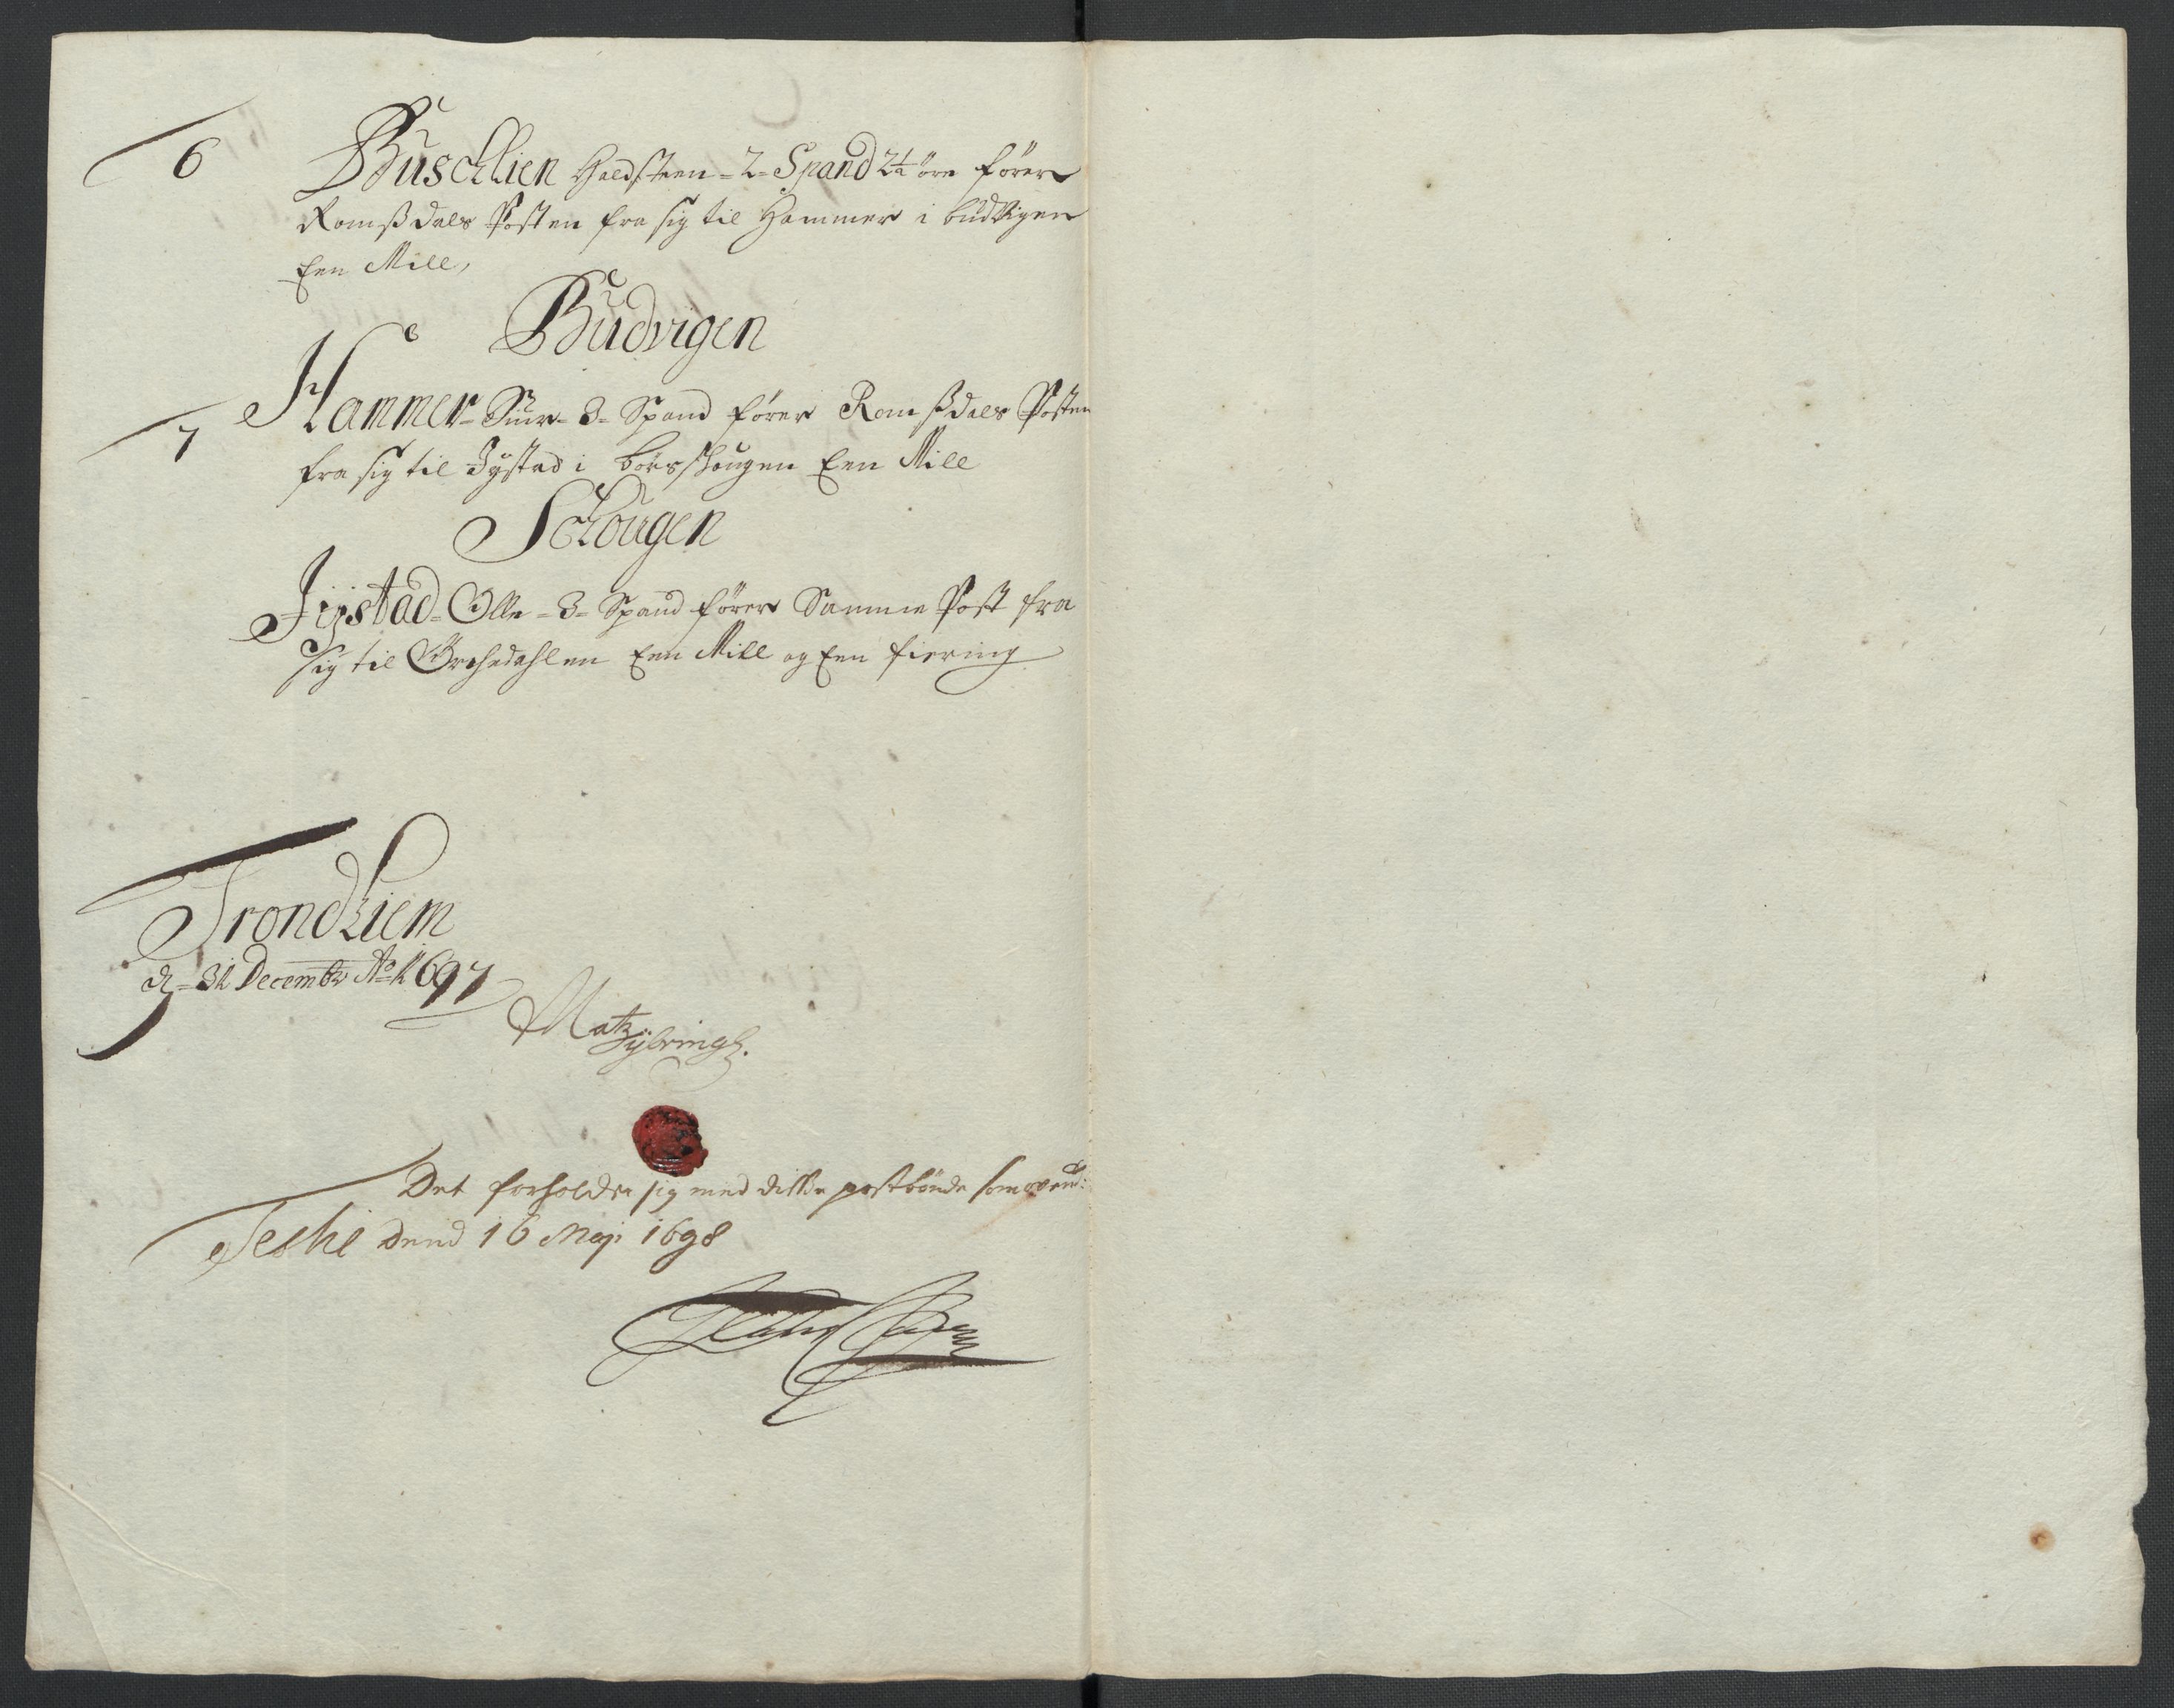 6 Buschlien Haldsteen - 2 - Spand 2½ öre förer
Romßdals Posten fra sig til Hammer i budvigen
Een Mill,
Budvigen
7 Hammer - Siur - 3 - Spand förer Romßdals Posten
fra sig til Jÿstad i börsschougen Een Mill
Schougen
Jijstad - Olle - 3 - Spand förer Samme Post fra
sig til Örchedahlen Een Mill og Een fiering
Trondhiem
d - 31 Decembr Ao 1697
Matz
Det forholder sig med disse postbönde som
Teslie dend 16 Maji 1698